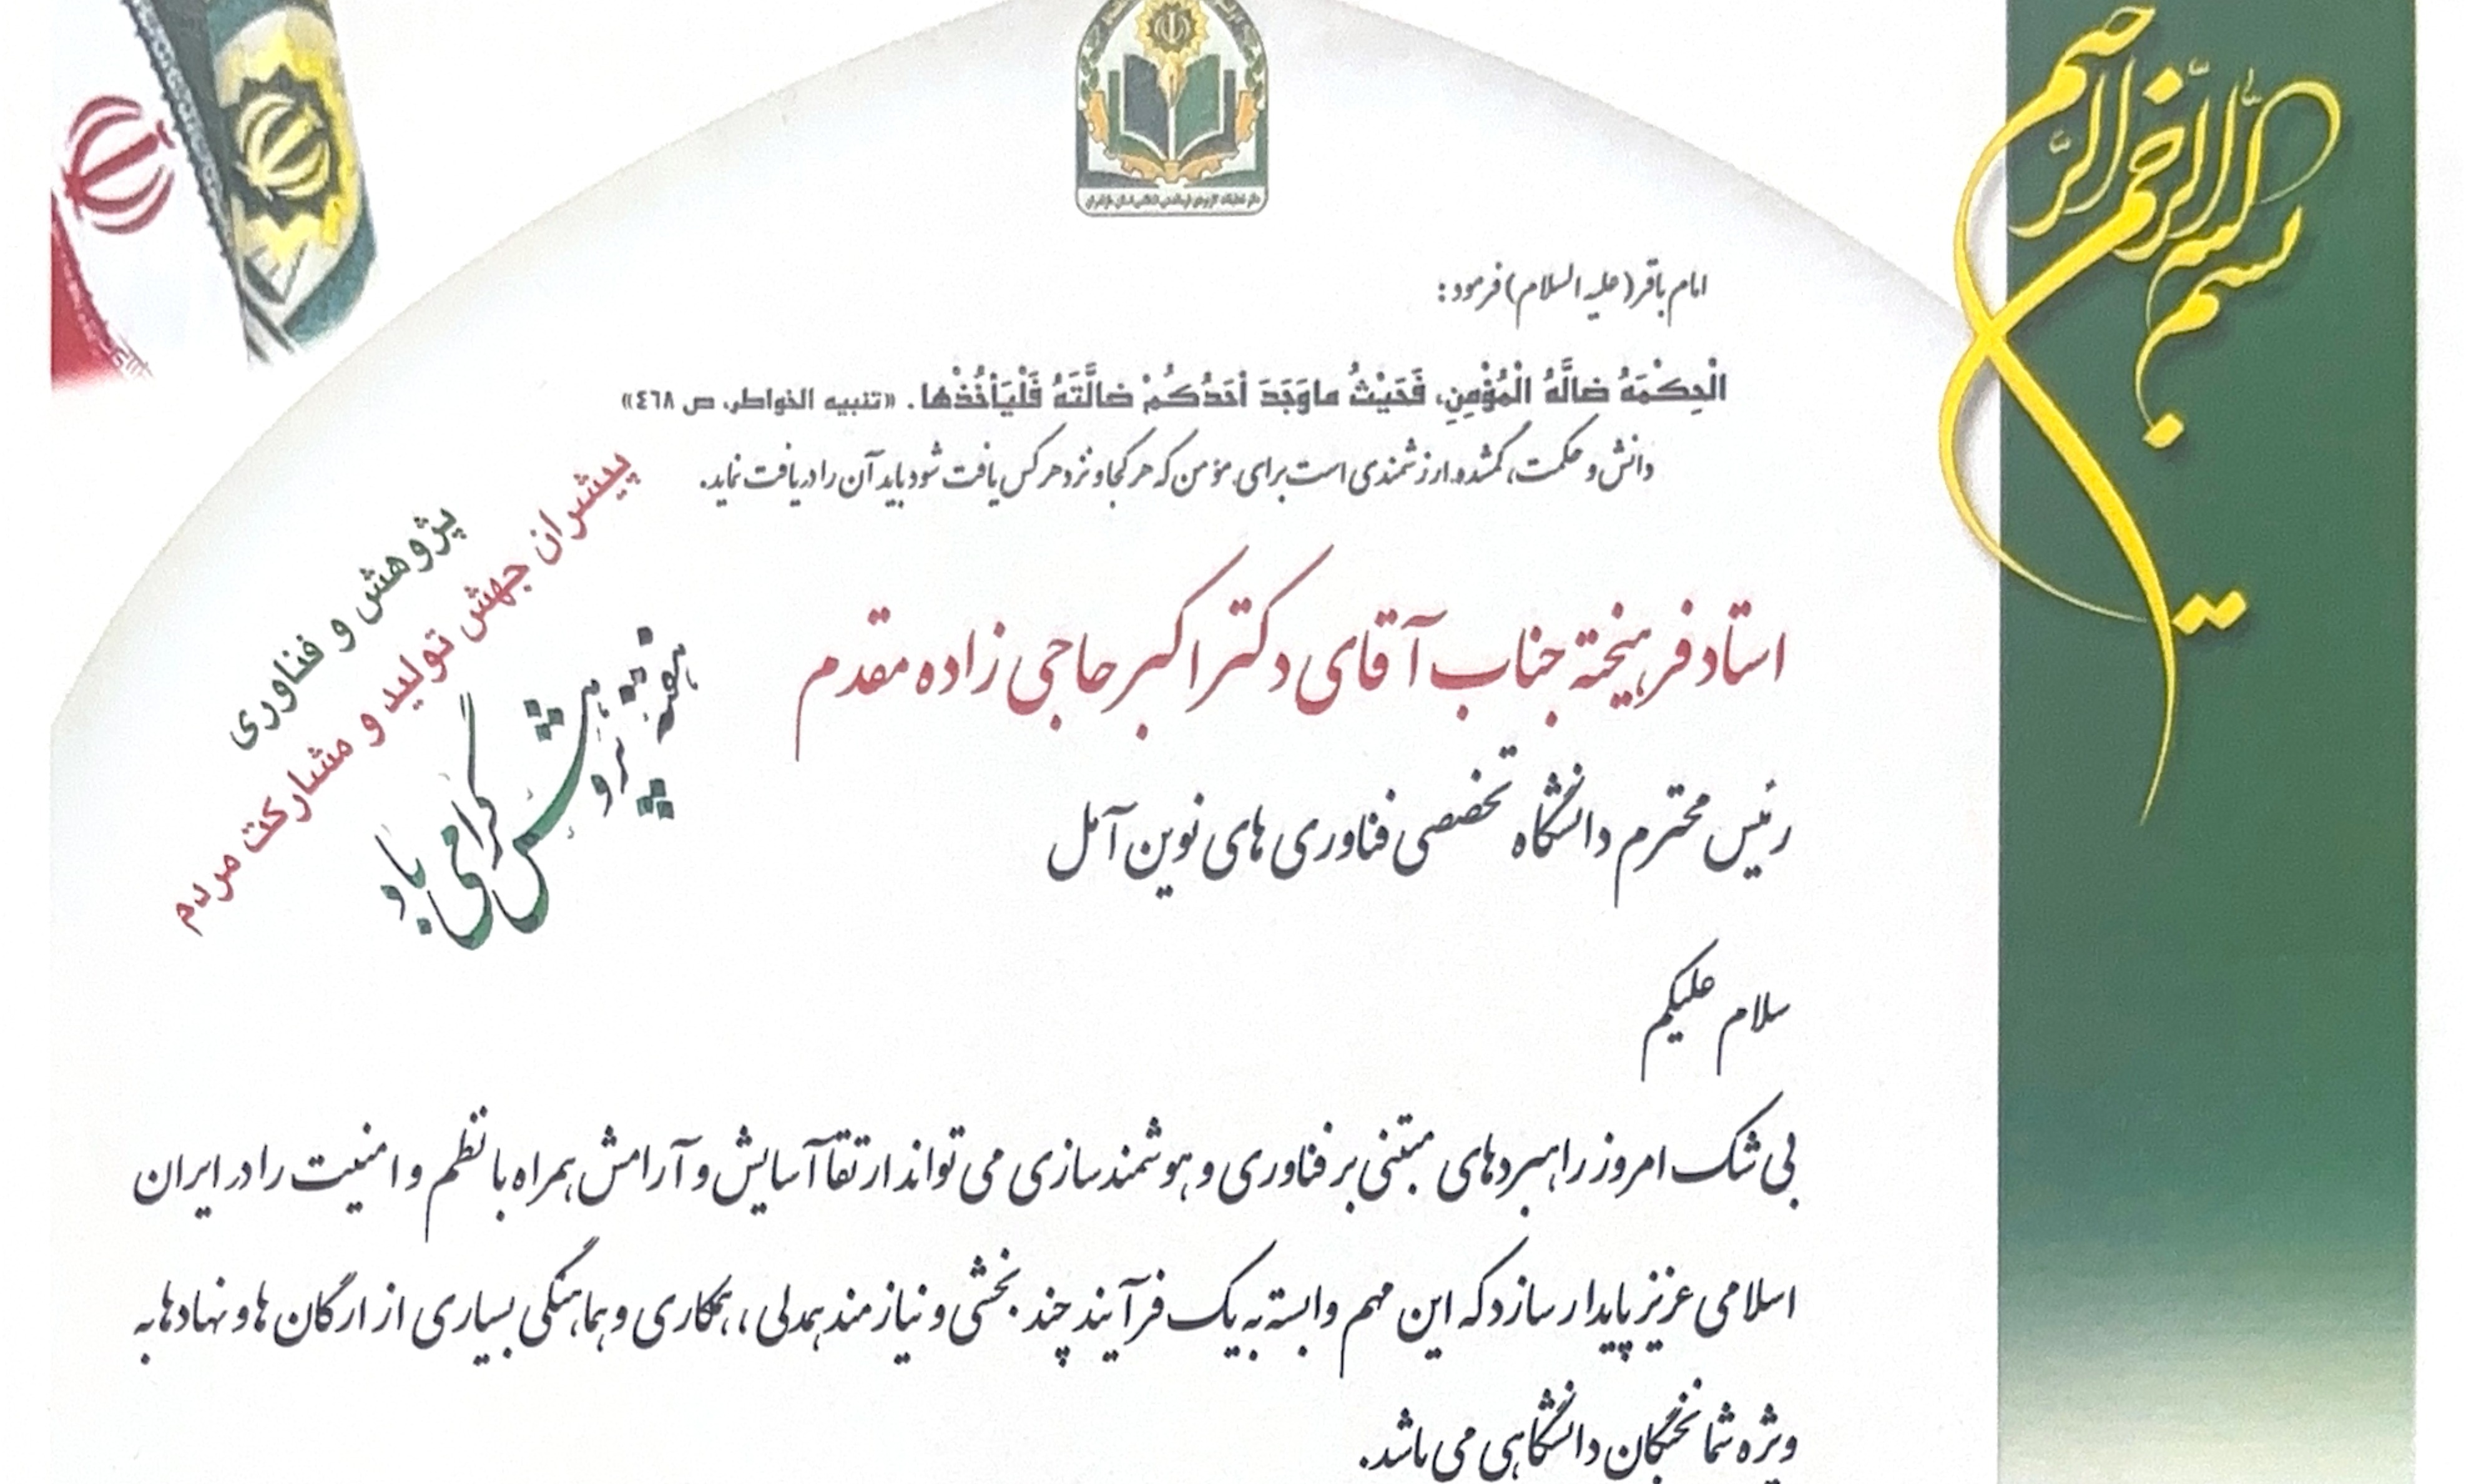 بسم الله الرحمن الرحیم
امام باقر (علیه السلام) فرمود:
الْحِکْمَهُ ضالَّهُ الْمُؤْمِنِ، فَحَیْثُ ماوَجَدَ اَحَدُکُمْ ضالَّتَهُ فَلْیَأخُذْها. «تنبیه الخواطر، ص ٤٦٨»
دانش و حکمت، گمشده ارزشمندی است برای مؤمن که هر کجا و نزد هر کس یافت شود باید آن را دریافت نماید.
پژوهش و فناوری
پیشران جهش تولید و مشارکت مردم
هفته پژوهش گرامی باد
استاد فرهیخته جناب آقای دکتر اکبر حاجی زاده مقدم
رئیس محترم دانشگاه تخصصی فناوری های نوین آمل
سلام علیکم
بی شک امروز راهبردهای مبتنی بر فناوری و هوشمندسازی می تواند ارتقا آسایش و آرامش همراه با نظم و امنیت را در ایران
اسلامی عزیز پایدار سازد که این مهم وابسته به یک فرآیند چند بخشی و نیازمند همدلی، همکاری و هماهنگی بسیاری از ارگان ها و نهادها به
ویژه شما نخبگان دانشگاهی می باشد.